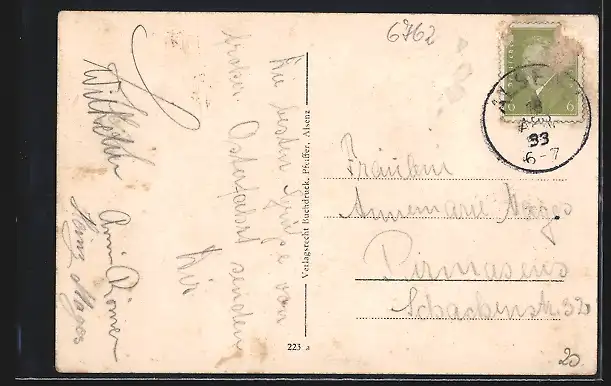 6762
ALSENZ
18
APR
33
6-7
6 6
Die besten Grüße von
froher Osterfahrt senden
Dir
Anni Römer
Heinz
Verlagsrecht Buchdruck. Pfeiffer, Alsenz
223 a
Fräulein
Annemarie
Pirmasens
Schachenstr. 32
20